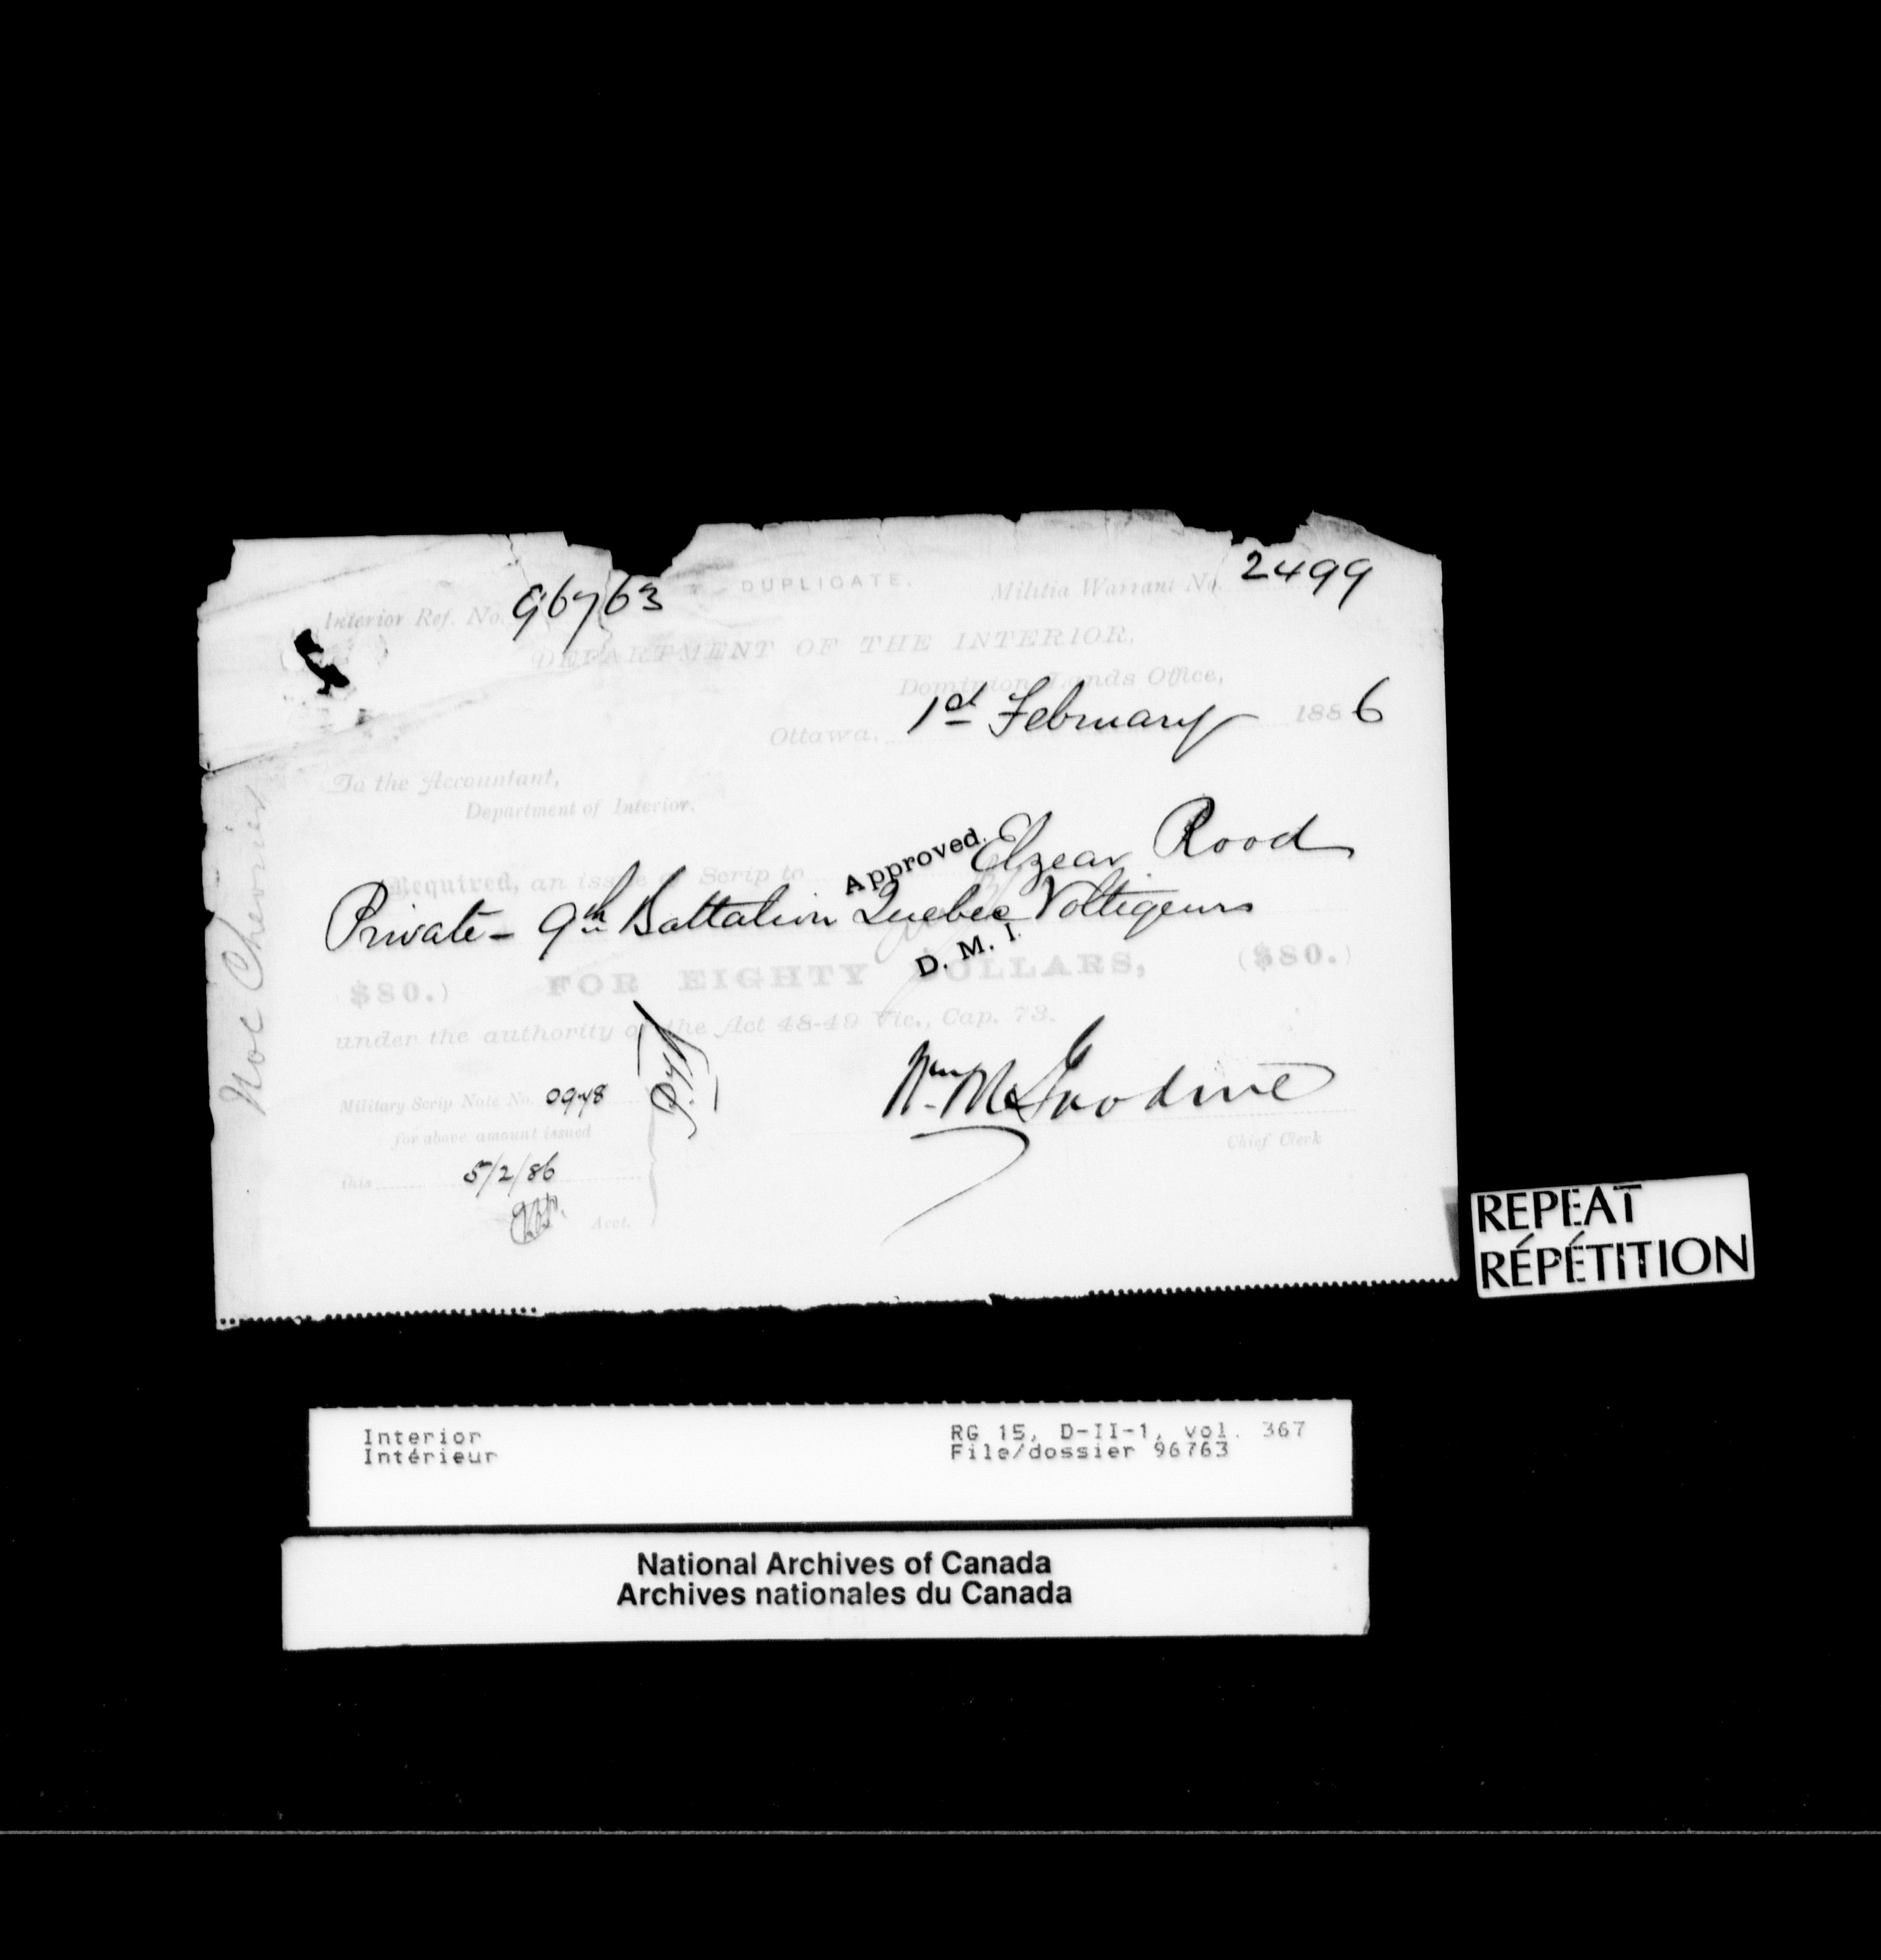 DUPLICATE.
Interior Ref. No. 96763
Militia Warrant No. 2499
DEPARTMENT OF THE INTERIOR,
Dominion Lands Office,
Ottawa, 1st February 1886
To the Accountant,
Department of Interior.
Approved.
Required, an issue of Scrip to Elzear Rood
Private - 9th Battalion Quebec Voltigeurs
D. M. I.
$80.) FOR EIGHTY DOLLARS, ($80.)
under the authority of the Act 48-49 Vic., Cap. 73.
Military Scrip Note No. 0978
for above amount issued
this 5/2/86
Acct.
Chief Clerk
REPEAT
RÉPÉTITION
Interior
Intérieur
RG 15, D-II-1, vol. 367
File/dossier 96763
National Archives of Canada
Archives nationales du Canada